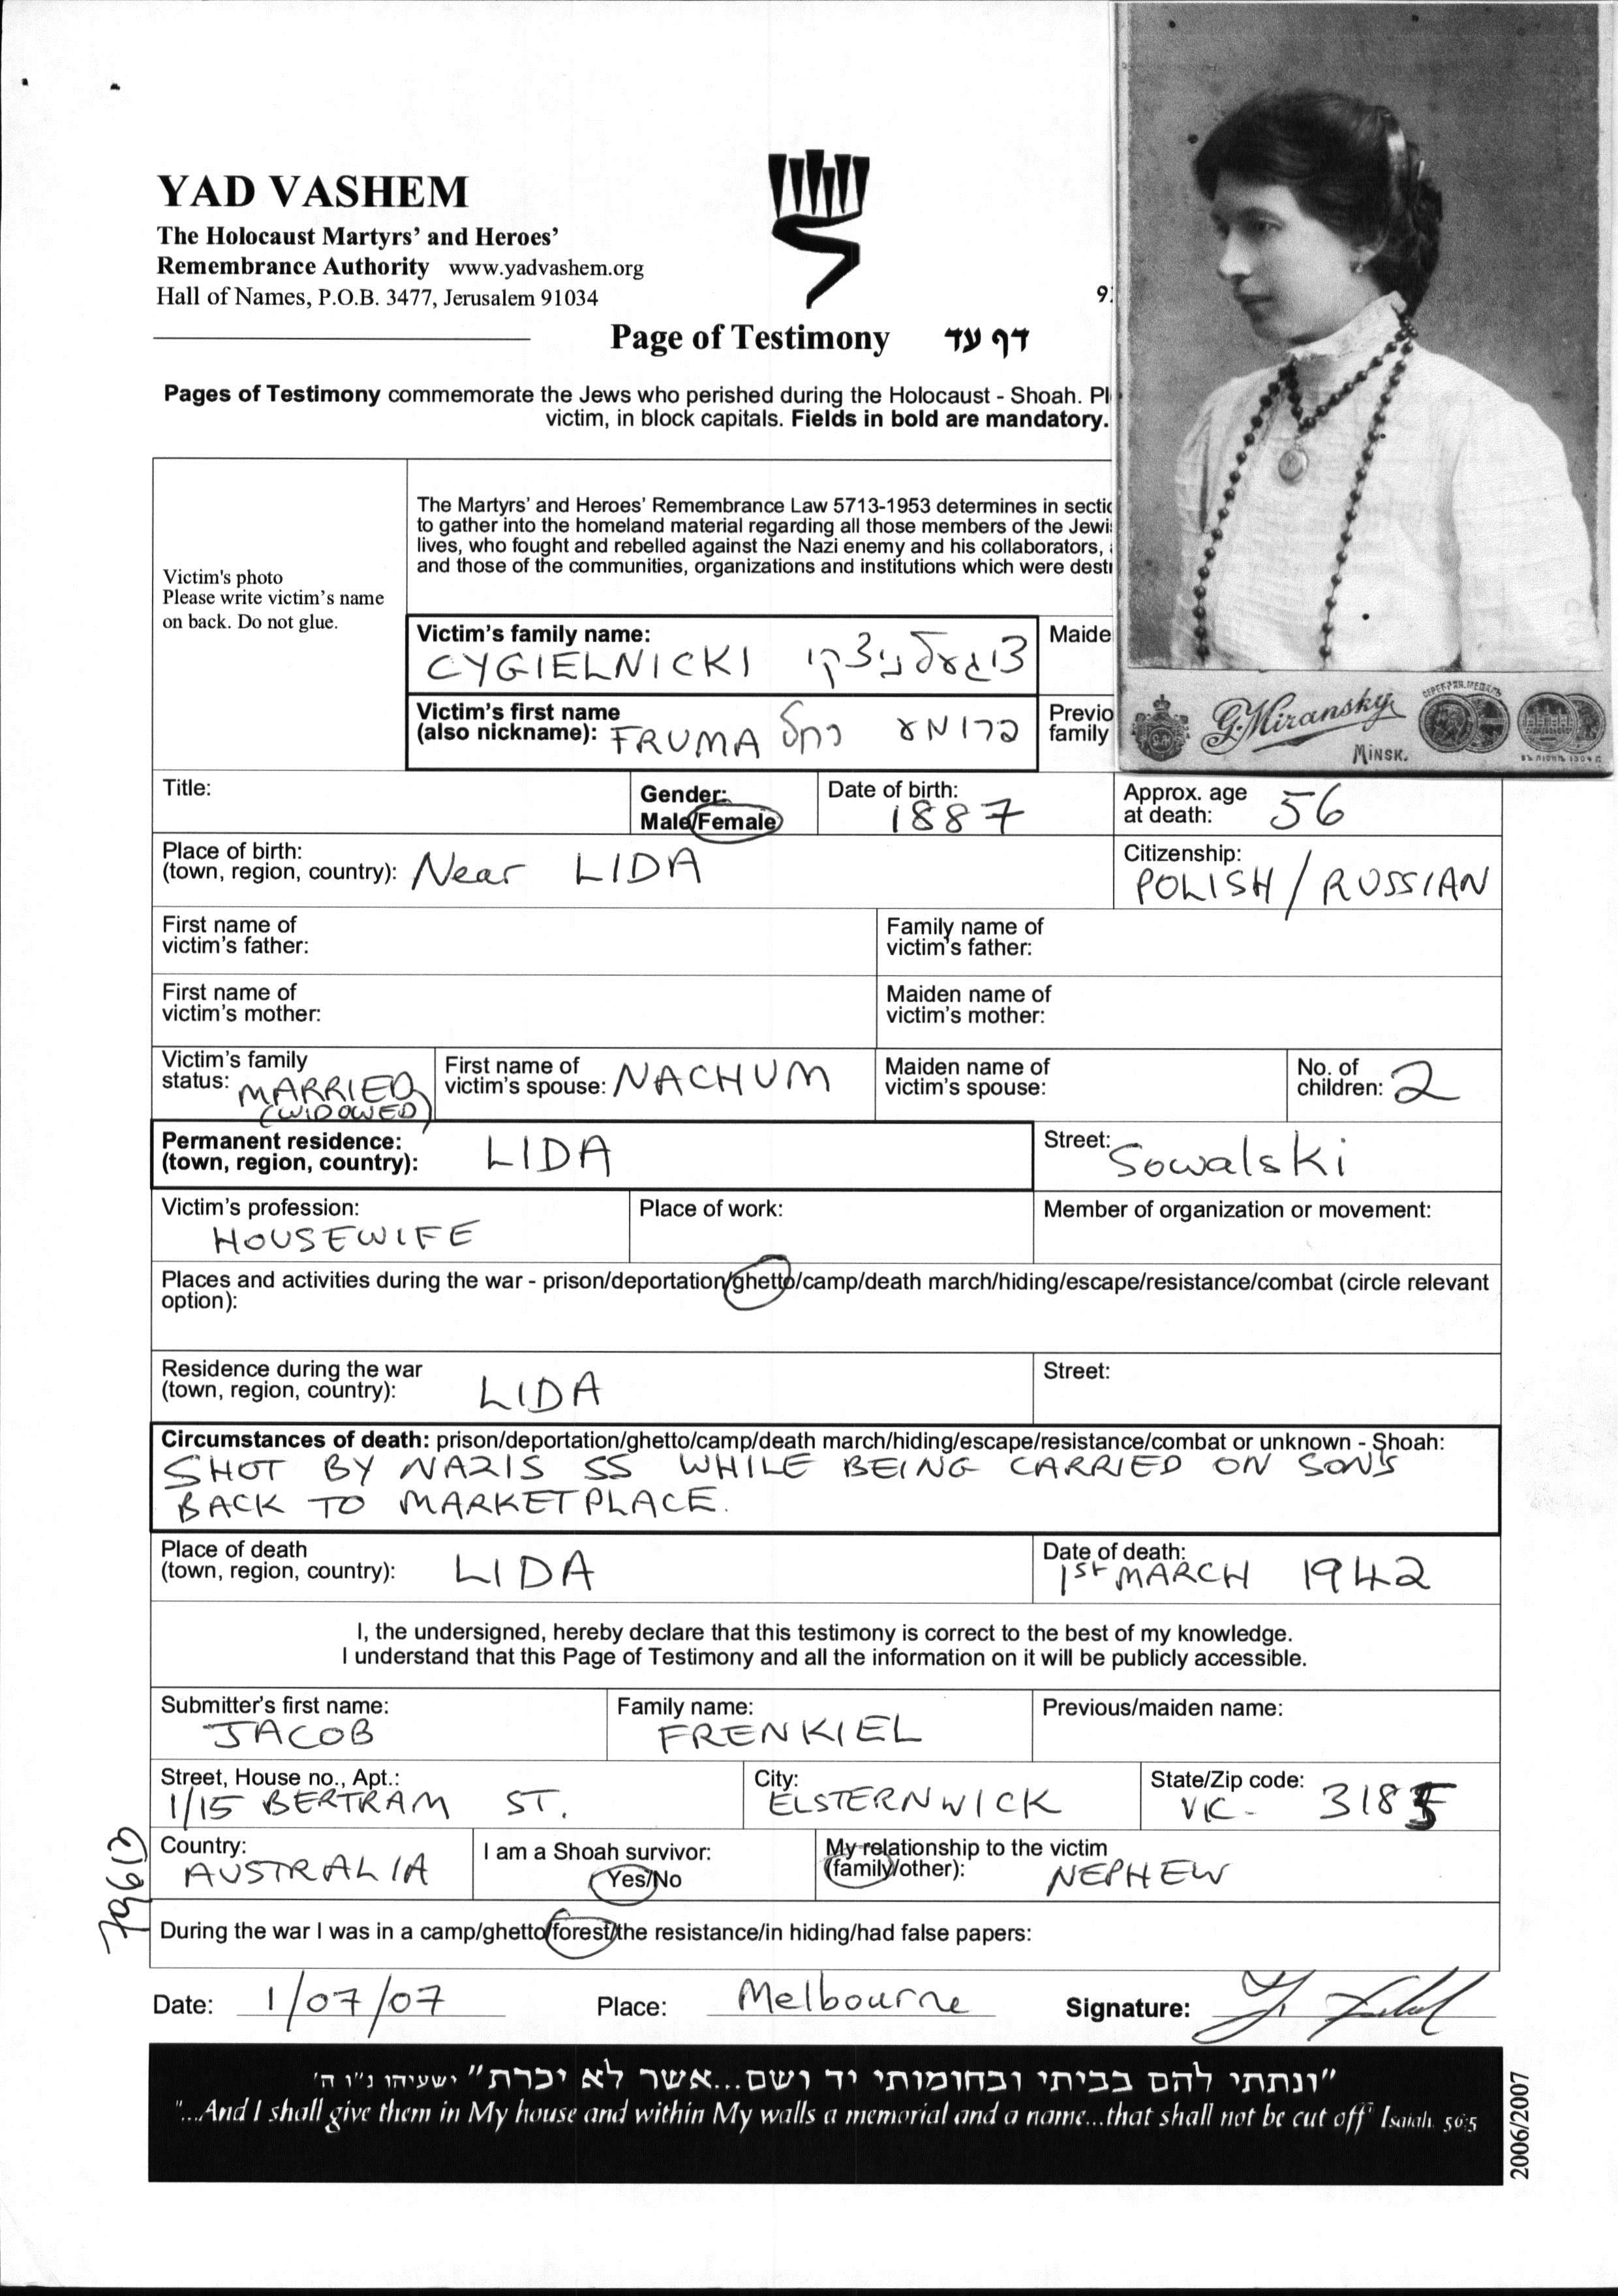 YAD VASHEM
The Holocaust Martyrs' and Heroes'
Remembrance Authority www.yadvashem.org
Hall of Names, P.O.B. 3477, Jerusalem 91034
Page of Testimony דף עד
Pages of Testimony commemorate the Jews who perished during the Holocaust - Shoah. Pl
victim, in block capitals. Fields in bold are mandatory.
Victim's photo
Please write victim's name
on back. Do not glue.
The Martyrs' and Heroes' Remembrance Law 5713-1953 determines in sectic
to gather into the homeland material regarding all those members of the Jewi
lives, who fought and rebelled against the Nazi enemy and his collaborators,
and those of the communities, organizations and institutions which were destr
Victim's family name:
CYGIELNICKI ציגעלניצקי
Maide
Victim's first name
(also nickname): FRUMA פרומע רחל
Previo
family
G. Miransky
MINSK.
Title:
Gender:
Male/Female
Date of birth:
1887
Approx. age
at death: 56
Place of birth:
(town, region, country): Near LIDA
Citizenship:
POLISH / RUSSIAN
First name of
victim's father:
Family name of
victim's father:
First name of
victim's mother:
Maiden name of
victim's mother:
Victim's family
status: MARRIED
(WIDOWED)
First name of
victim's spouse: NACHUM
Maiden name of
victim's spouse:
No. of
children: 2
Permanent residence:
(town, region, country): LIDA
Street: Sowalski
Victim's profession:
HOUSEWIFE
Place of work:
Member of organization or movement:
Places and activities during the war - prison/deportation/ghetto/camp/death march/hiding/escape/resistance/combat (circle relevant
option):
Residence during the war
(town, region, country): LIDA
Street:
Circumstances of death: prison/deportation/ghetto/camp/death march/hiding/escape/resistance/combat or unknown - Shoah:
SHOT BY NAZIS SS WHILE BEING CARRIED ON SON'S
BACK TO MARKETPLACE.
Place of death
(town, region, country): LIDA
Date of death:
1st MARCH 1942
I, the undersigned, hereby declare that this testimony is correct to the best of my knowledge.
I understand that this Page of Testimony and all the information on it will be publicly accessible.
Submitter's first name:
JACOB
Family name:
FRENKIEL
Previous/maiden name:
Street, House no., Apt.:
1/15 BERTRAM ST.
City:
ELSTERNWICK
State/Zip code:
VIC - 3185
Country:
AUSTRALIA
I am a Shoah survivor:
Yes/No
My relationship to the victim
(family/other): NEPHEW
During the war I was in a camp/ghetto/forest/the resistance/in hiding/had false papers:
Date: 1/07/07
Place: Melbourne
Signature:
"ונתתי להם בביתי ובחומותי יד ושם...אשר לא יכרת" ישעיהו נ"ו ה'
"...And I shall give them in My house and within My walls a memorial and a name...that shall not be cut off" Isaiah 56:5
2006/2007